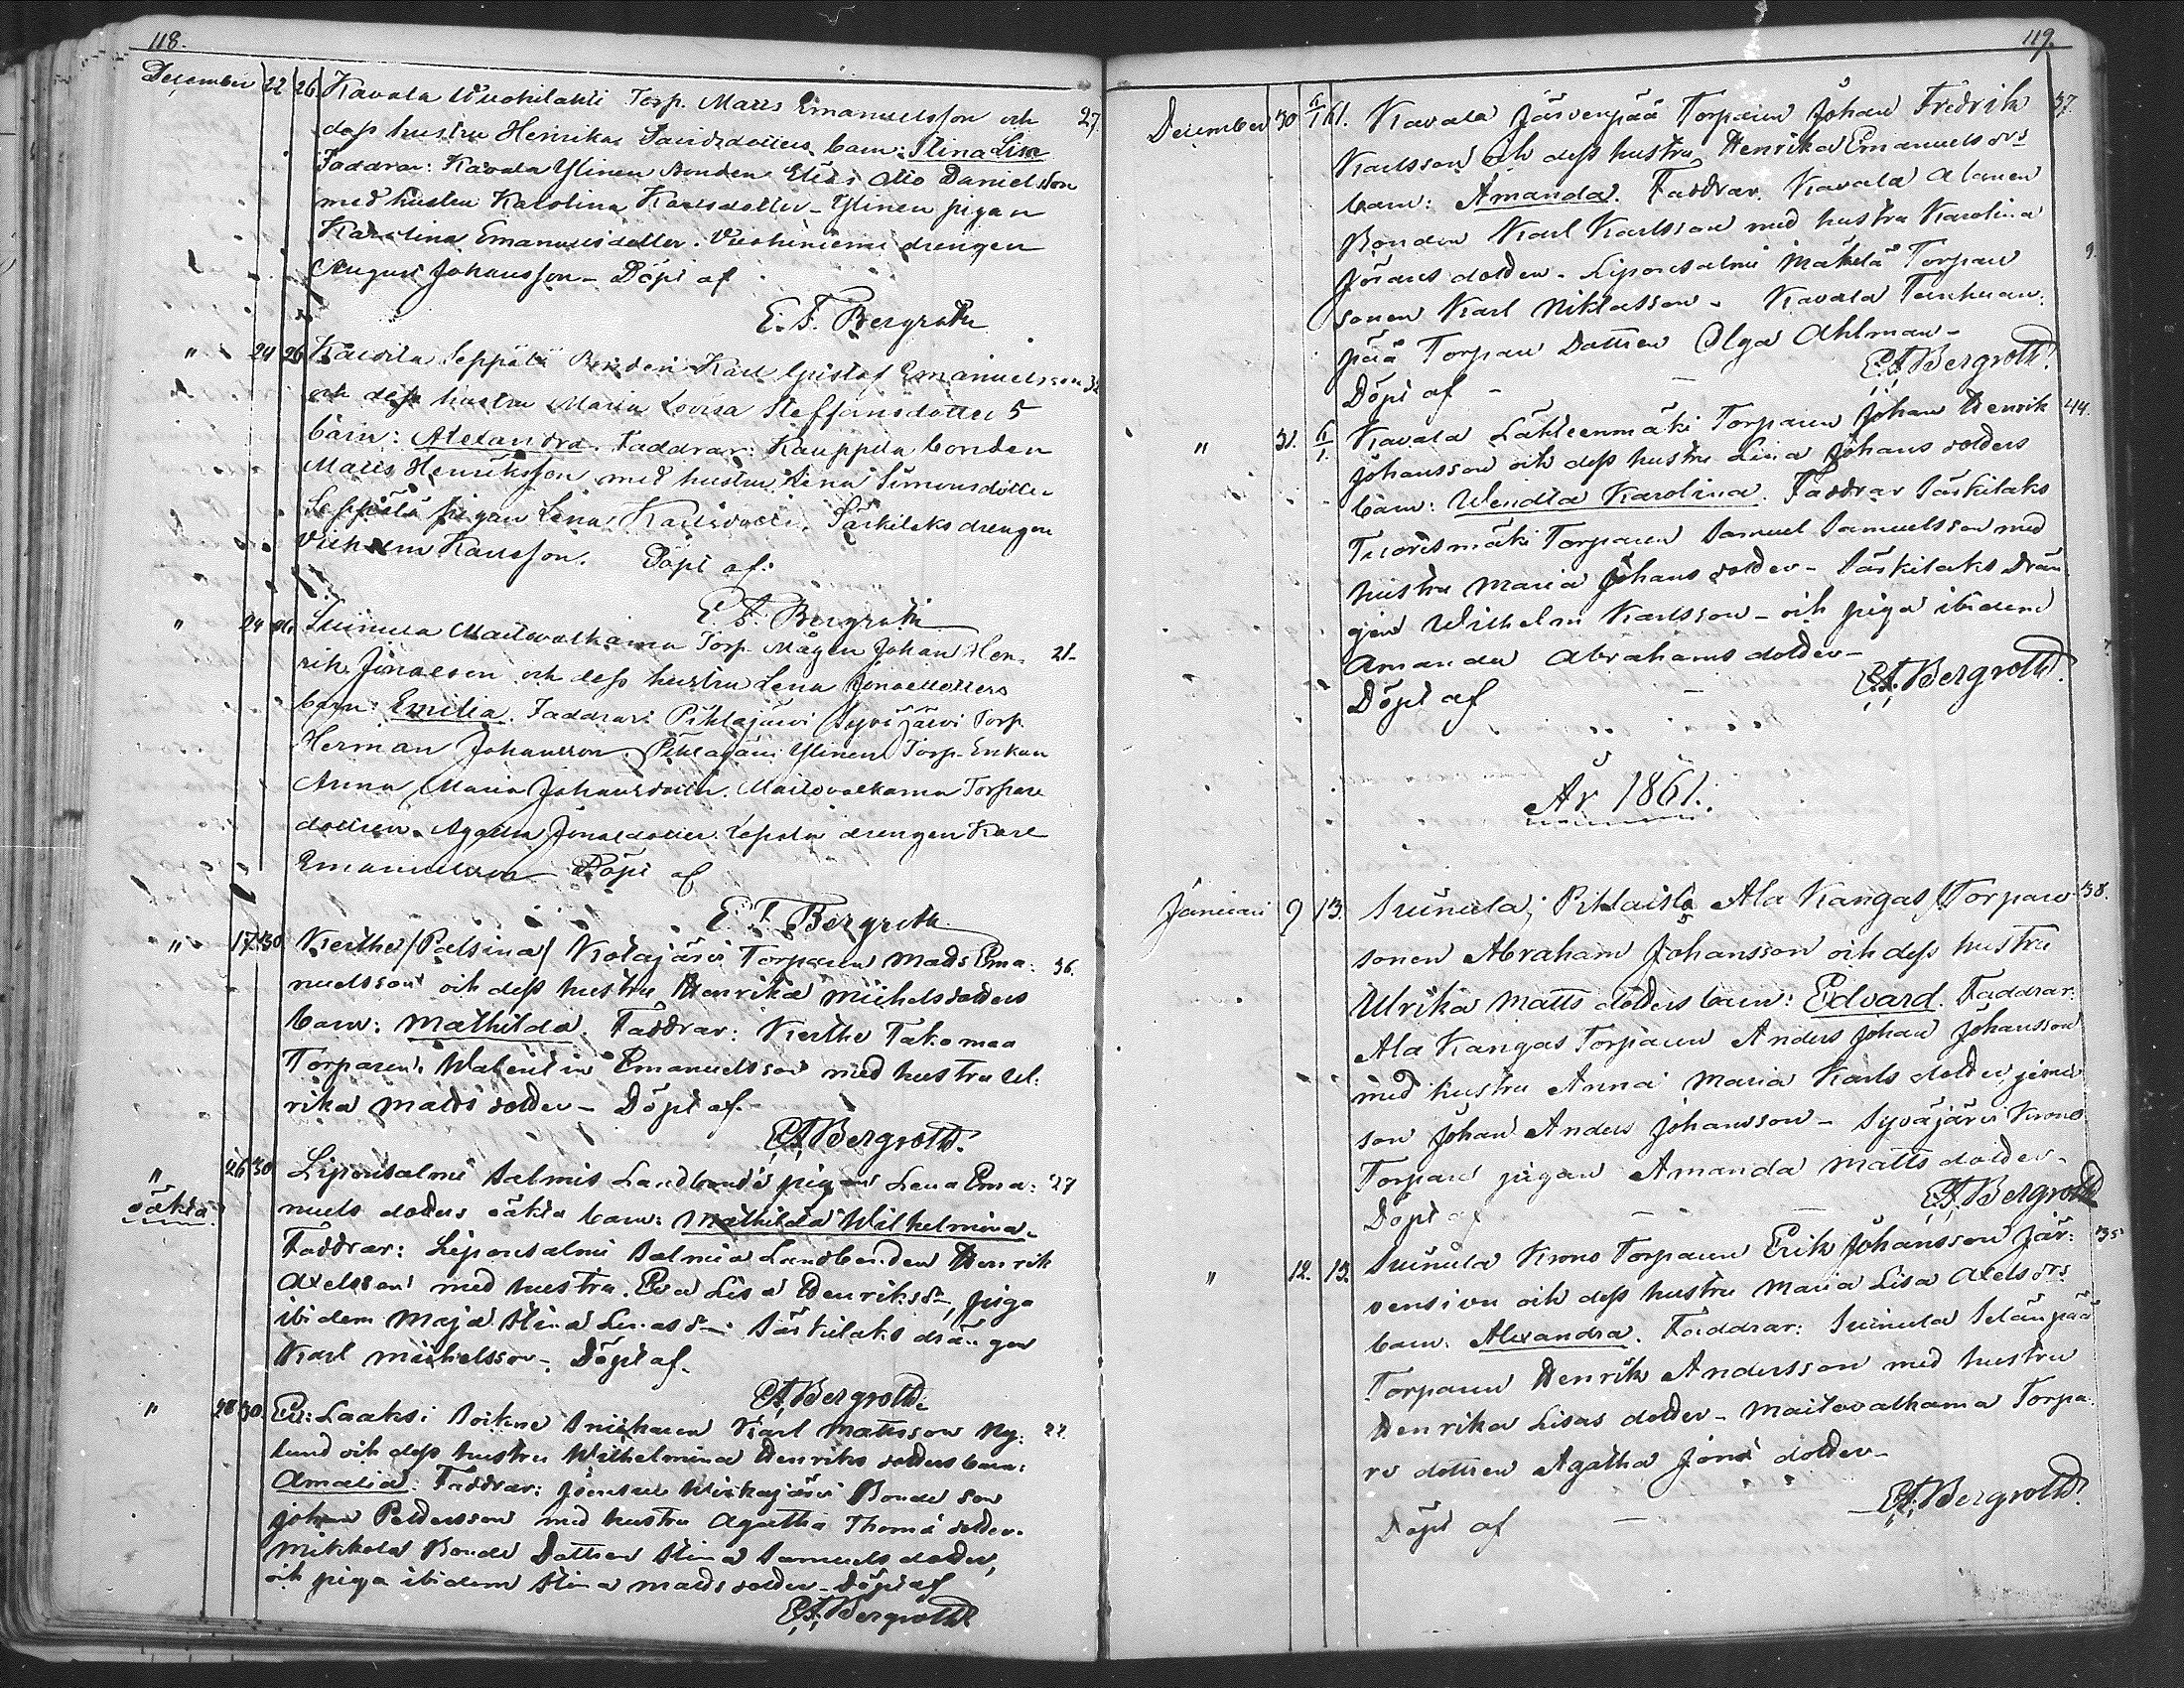 118.
December 22 26. Kavala Torp. Matts Emanuelsson och 27.
dess hustru Henrika Davidsdotters barn: Stina Lisa
Faddrar: Kavala Ylinen bonden Elias Otto Danielsson
med hustru Karolina Karlsdotter - Ylinen pigan
Karolina Emanuelsdotter. Vuohiniemi drengen
August Johansson - Döpt af
E. F. Bergroth
" 24 26 Kavala Seppälä Bonden Karl Gustaf Emanuelsson 32
och dess hustru Maria Lovisa Steffansdotters
barn: Alexandra. Faddrar: Kauppila bonden
Matts Henriksson med hustru Lena Simonsdotter
Seppälä pigan Lena Karlsdotter. Särkilaks drengen
Vilhelm Karlsson. Döpt af:
E. F. Bergroth
" 24 26 Suinula Maitovalkama Torp. Mågen Johan Hen- 21-
rik Jonasson och dess hustru Lena Jonaedotters
barn: Emilia. Faddrar: Pihlajärvi Syväjärvi Torp.
Herman Johansson. Pihlajärvi Ylinen Torp. Enkan
Anna Maria Johansdotter. Maitovalkama Torpare
dottren Agatha Jonaedotter. Lepola drengen Karl
Emanuelsson Döpt af
E. F. Bergroth
" 17. 30 Kerthe /Palsina/ Kotajärvi Torparen Mads Ema- 36.
nuelsson och dess hustru Henrika Michelsdotters
barn: Mathilda. Faddrar: Kerthe Takamaa
Torparen Walentin Emanuelsson med hustru Ul-
rika Matts dotter - Döpt af.
E.F. Bergroth.
" 26 30 Liponsalmi Salmis Landbonde pigan Lena Ema- 27
oäkta nuels dotters oäkta barn: Mathilda Wilhelmina.
Faddrar: Liponsalmi Salmis Landbonden Henrik
Axelsson med hustru Eva Lisa Henriksdr, piga
ibidem Maja Stina Lucasdr - Särkilaks drängen
Karl Michelsson - Döpt af.
E.F. Bergroth.
" 28 30. Laaksi Soikne Snickaren Karl Mattsson Ny- 22.
lund och dess hustru Wilhelmina Henriks dotters barn:
Amalia. Faddrar: Wirkajärvi Bonde son
Johan Pettersson med hustru Agatha Thomä dotter.
Mikkola Bonde Dottren Stina Samuels dotter,
och piga ibidem Stina Mattsdotter - Döpt af
E.F. Bergroth.
119.
December 30 6/1 61. Kavala Järvenpää Torparen Johan Fredrik 37.
Karlsson och dess hustru Henrika Emanuelsdrs
barn: Amanda. Faddrar. Kavala Alanen
Bonden Karl Karlsson med hustru Karolina
Jörans dotter - Liponsalmi Mäkelä Torpare 9
sonen Karl Niklasson - Kavala
pää Torpare Dottren Olga Ahlman -
Döpt af - - E.F. Bergroth.
" 31. 6/1. Kavala Lähteenmäki Torparen Johan Henrik 44.
Johansson och dess hustru Lisa Johans dotters
barn: Wendla Karolina. Faddrar Särkilaks
Tuorismäki Torparen Samuel Samuelsson med
hustru Maria Johans dotter - Särkilaks Drän-
gen Wilhelm Karlsson - och piga ibidem
Amanda Abrahams dotter -
Döpt af - E.F. Bergroth.
År 1861.
Januari 9 13. Suinula, Pihlaisto Ala Kangas Torpare 38.
sonen Abraham Johansson och dess hustru
Ulrika Matts dotters barn: Edvard. Faddrar:
Ala Kangas Torparen Anders Johan Johansson
med hustru Anna Maria Karls dotter,
son Johan Anders Johansson - Syväjärvi Krono
Torpare pigan Amanda Matts dotter -
Döpt af - - E.F. Bergroth
" 12. 13. Suinula Krono Torparen Erik Johansson Jär- 35
vensivu och dess hustru Maria Lisa Axelsdrs
barn. Alexandra. Faddrar: Suinula Selänpää
Torparen Henrik Andersson med hustru
Henrika Lisas dotter - Maitovalkama Torpa-
re dottren Agatha Jonä dotter -
Döpt af - E.F. Bergroth.